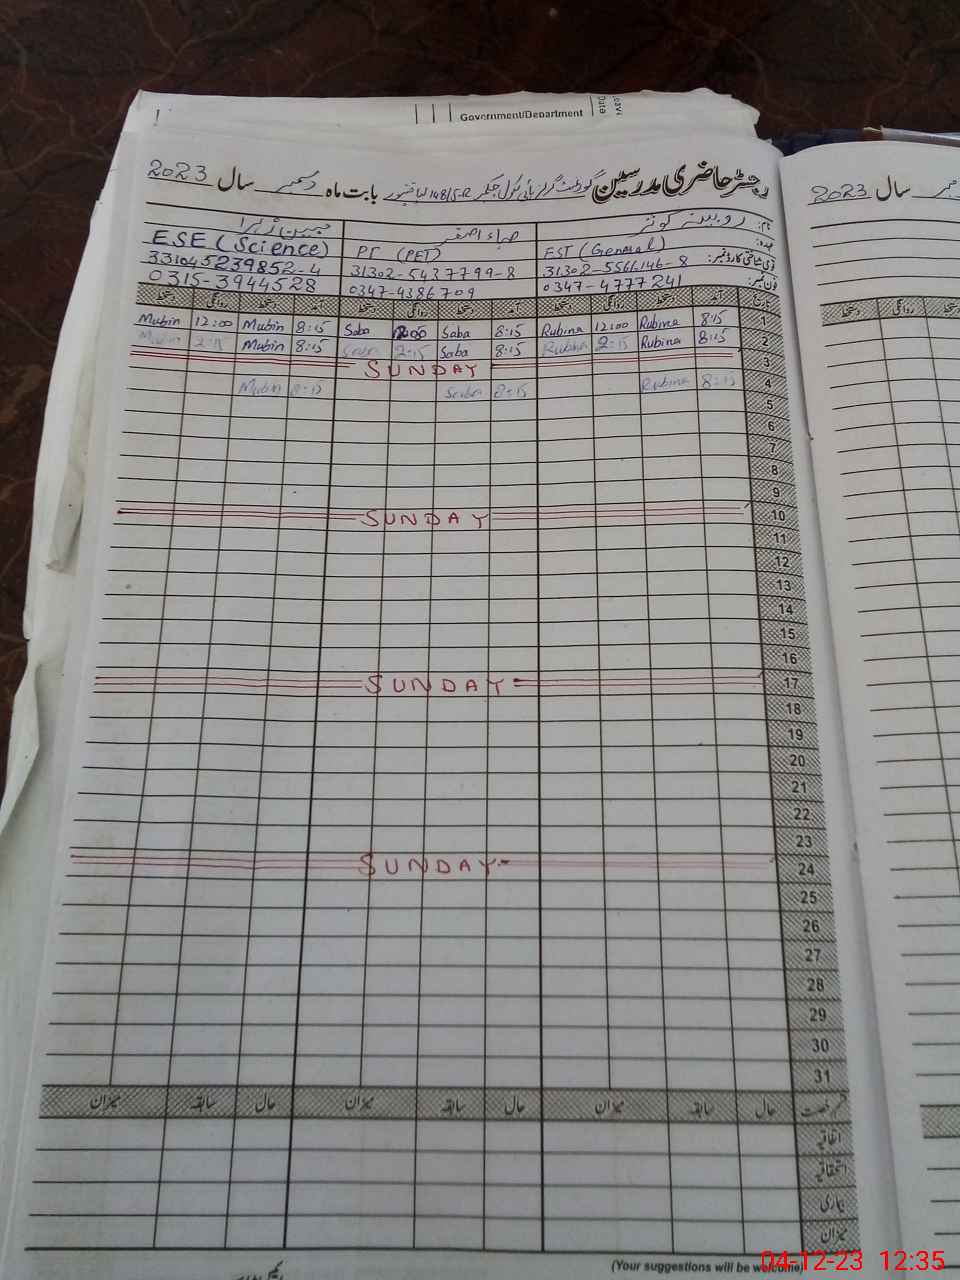 Government/Department
Data
رجسٹر حاضری مدرسین گورنمنٹ گرلز ہائی سکول بابت ماہ دسمبر سال 2023
2023 سال
نام: روبینہ کوثر صباء اصغر
عہدہ: EST (General) PT (PET) ESE (Science)
قومی شناختی کارڈ نمبر: 31302-5566146-8 31302-5437799-8 331045239852-4
فون نمبر: 0347-4777241 0347-4386709 0315-3944528
تاریخ آمد دستخط روانگی دستخط آمد دستخط روانگی دستخط آمد دستخط روانگی دستخط
Mubin 12:00 Mubin 8:15 Saba 12:00 Saba 8:15 Rubina 12:00 Rubina 8:15 1
Mubin 2:15 Mubin 8:15 Saba 2:15 Saba 8:15 Rubina 2:15 Rubina 8:15 2
SUNDAY 3
Mubin 8:15 Saba 8:15 Rubina 8:15 4
5
6
7
8
9
SUNDAY 10
11
12
13
14
15
16
SUNDAY 17
18
19
20
21
22
23
SUNDAY 24
25
26
27
28
29
30
31
قسم رخصت حال سابقہ میزان حال سابقہ میزان حال سابقہ میزان
اتفاقیہ
استحقاقیہ
بیماری
میزان
(Your suggestions will be welcome)
04-12-23 12:35